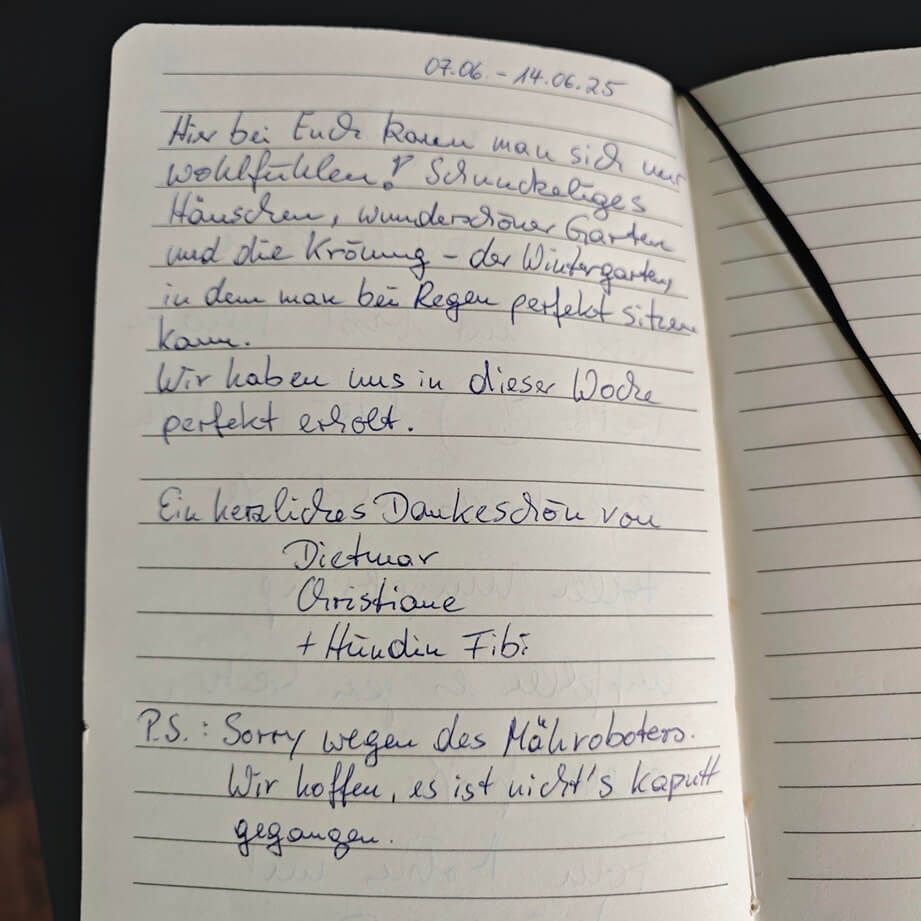 07.06. - 14.06.25
Hier bei Euch kann man sich nur
wohlfühlen! Schnuckeliges
Häuschen, wunderschöner Garten
und die Krönung - der Wintergarten,
in dem man bei Regen perfekt sitzen
kann.
Wir haben uns in dieser Woche
perfekt erholt.
Ein herzliches Dankeschön von
Dietmar
Christiane
+ Hündin Fibi
P.S.: Sorry wegen des Mähroboters.
Wir hoffen, es ist nicht's kaputt
gegangen.